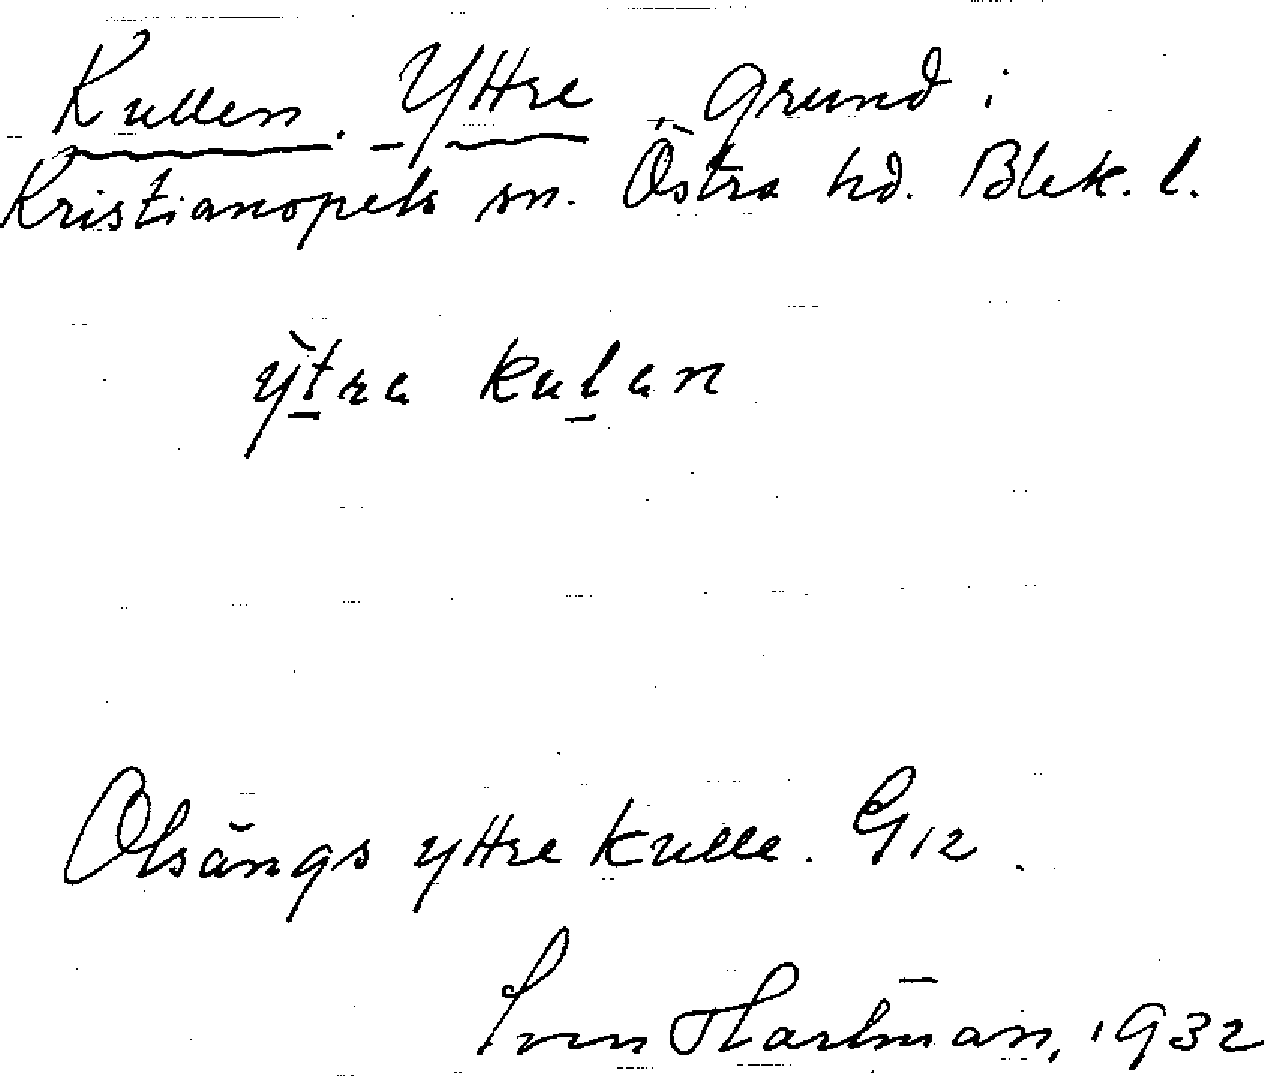 Kullen, Yttre, grund i
Kristianopels sn. Östra hd. Blek. l.
ỳtra kulan
Olsängs yttre kulle. G12.
Sven Hartman, 1932